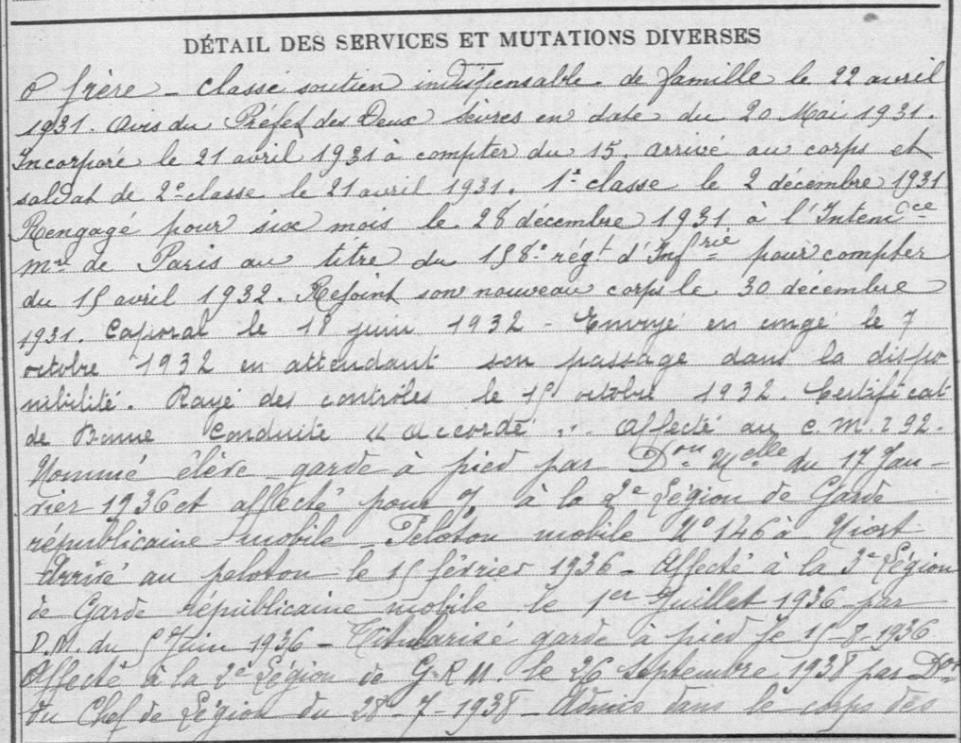 DÉTAIL DES SERVICES ET MUTATIONS DIVERSES
frère - Classé soutien indispensable. de famille le 22 avril
1931. avis du Préfet des Deux Sèvres en date du 20 Mai 1931.
Incorporé le 21 avril 1931 à compter du 15. arrivé au corps et
soldat de 2e classe le 21 avril 1931. 1è classe le 2 décembre 1931
Rengagé pour six mois le 28 décembre 1931 à l'Intendce
mre de Paris au titre du 158e régt d'Infrie pour compter
du 15 avril 1932. Rejoint son nouveau corps le 30 décembre
1931. Caporal le 18 juin 1932 - Envoyé en congé le 7
octobre 1932 en attendant son passage dans la dispo
nibilité. Rayé des contrôles le 15 octobre 1932. Certificat
de Bonne Conduite "accordé". Affecté au C. M. I 92.
Nommé élève garde à pied par Don Melle du 17 Jan-
vier 1936 et affecté pour à la 2e Légion de Garde
républicaine mobile - Peloton mobile No 146 à Niort
Arrivé au peloton le 15 février 1936 - Affecté à la 3e Légion
de Garde républicaine mobile le 1er Juillet 1936 par
D.M. du 5 Juin 1936 - Titularisé garde à pied le 15-8-1936
Affecté à la 2e Légion de G.R.M. le 26 Septembre 1938 par Don
du Chef de Légion du 28-7-1938 - Admis dans le corps des